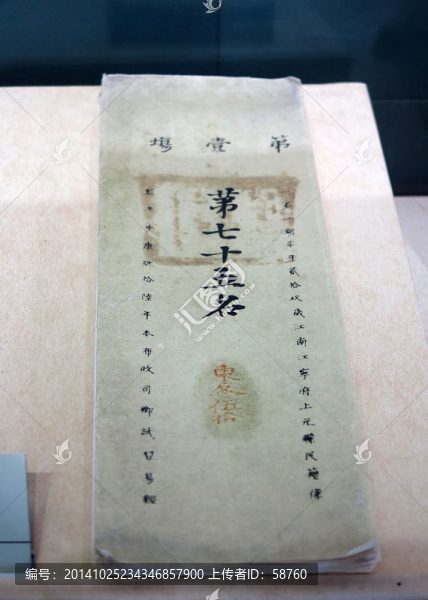 第壹場
年貳拾玖歲江南江寧府上元縣民籍
第七十五名
東
中康熙拾陸年本布政司鄉試習易經
编号：20141025234346857900 上传者ID：58760